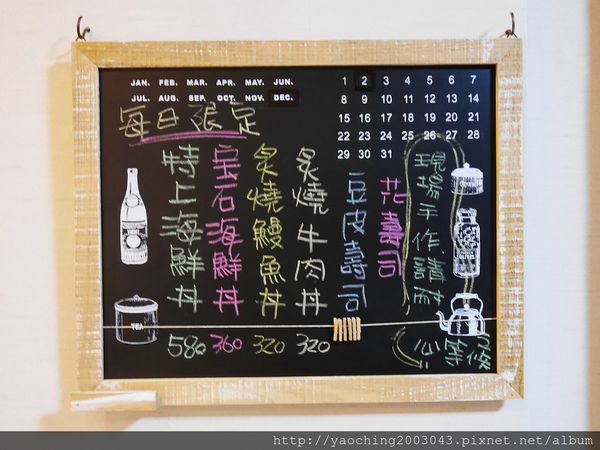 JAN. FEB. MAR. APR. MAY. JUN.
JUL. AUG. SEP. OCT. NOV. DEC.
1 2 3 4 5 6 7
8 9 10 11 12 13 14
15 16 17 18 19 20 21
22 23 24 25 26 27 28
29 30 31
每日限定
現場手作請耐
心等候
花壽司
豆皮壽司
炙燒牛肉丼 320
炙燒鰻魚丼 320
宝石海鮮丼 360
特上海鮮丼 580
TEA
http://yaoching2003043.pixnet.net/album